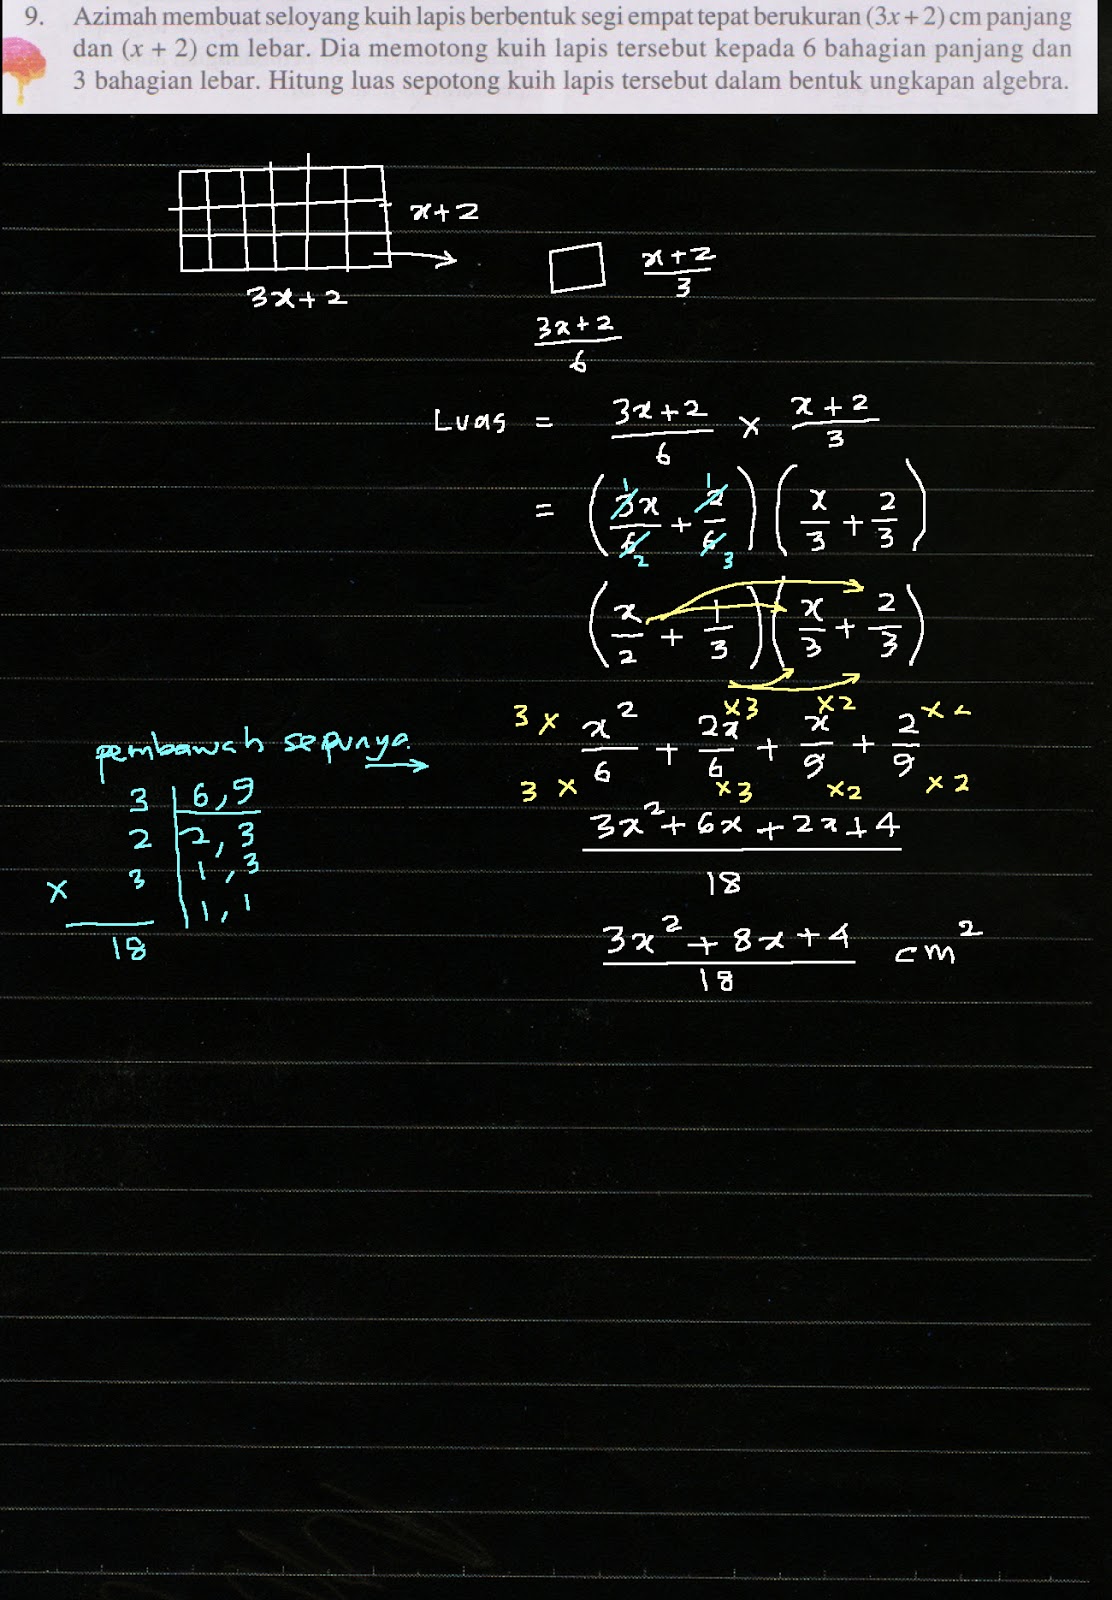 9. Azimah membuat seloyang kuih lapis berbentuk segi empat tepat berukuran (3x + 2) cm panjang
dan (x + 2) cm lebar. Dia memotong kuih lapis tersebut kepada 6 bahagian panjang dan
3 bahagian lebar. Hitung luas sepotong kuih lapis tersebut dalam bentuk ungkapan algebra.
x+2
3x+2
x+2
3
3x+2
6
Luas = 3x+2/6 × x+2/3
= (3x/6 + 2/6)(x/3 + 2/3)
1 1
2 3
(x/2 + 1/3)(x/3 + 2/3)
3 × ×3 ×2
x²/6 + 2x/6 + x/9 + 2/9
3 × ×3 ×2 ×2
3x² + 6x + 2x + 4
18
3x² + 8x + 4 cm²
18
pembawah sepunya
3 | 6, 9
2 | 2, 3
× 3 | 1, 3
1, 1
18